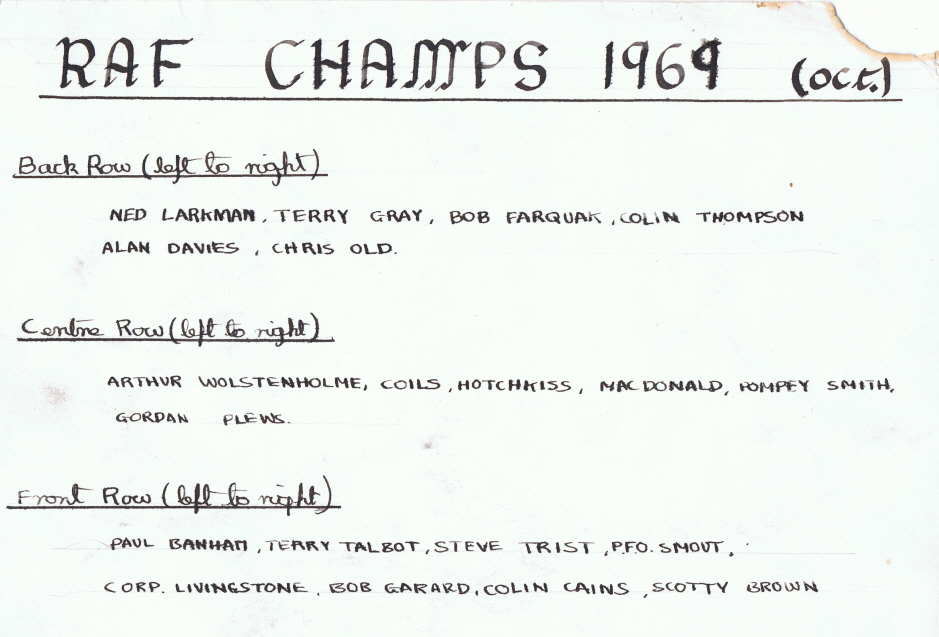 RAF CHAMPS 1969 (Oct.)
Back Row (left to right)
NED LARKMAN, TERRY GRAY, BOB FARQUAK, COLIN THOMPSON
ALAN DAVIES, CHRIS OLD.
Centre Row (left to right)
ARTHUR WOLSTENHOLME, COILS, HOTCHKISS, MACDONALD, POMPEY SMITH,
GORDAN PLEWS.
Front Row (left to right)
PAUL BANHAM, TERRY TALBOT, STEVE TRIST, P.F.O. SMOUT,
CORP. LIVINGSTONE, BOB GARARD, COLIN CAINS, SCOTTY BROWN